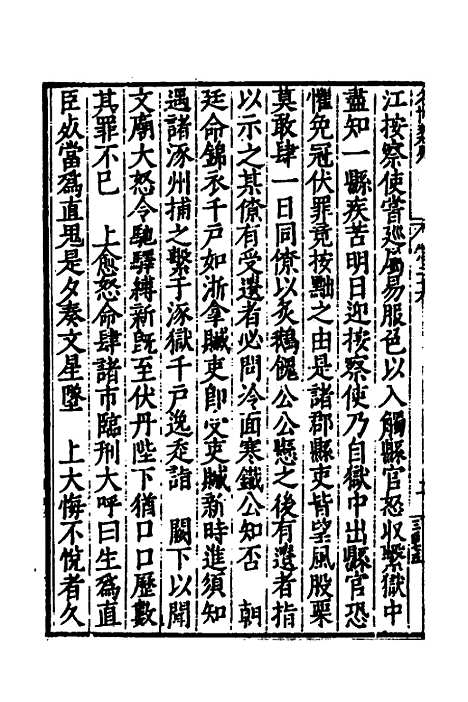 江按察使嘗巡属易服色以入觸縣官怒収繫獄中
盡知一縣疾苦明日迎按察使乃自獄中出縣官恐
懼免冠伏罪竟按黜之由是諸郡縣吏皆望風股栗
莫敢肆一日同僚以炙鵝餽公公懸之後有遺者指
以示之某僚有受遺者必問冷面寒鐵公知否　朝
廷命錦衣千戶如浙拿贓吏即受吏贓新時進須知
遇諸涿州捕之繫于涿獄千戶逸走詣　闕下以聞
文廟大怒令馳驛縛新既至伏丹陛下猶口口歷數
其罪不已　上愈怒命肆諸市臨刑大呼曰生爲直
臣死當爲直鬼是夕奏文星墜　上大悔不悅者久